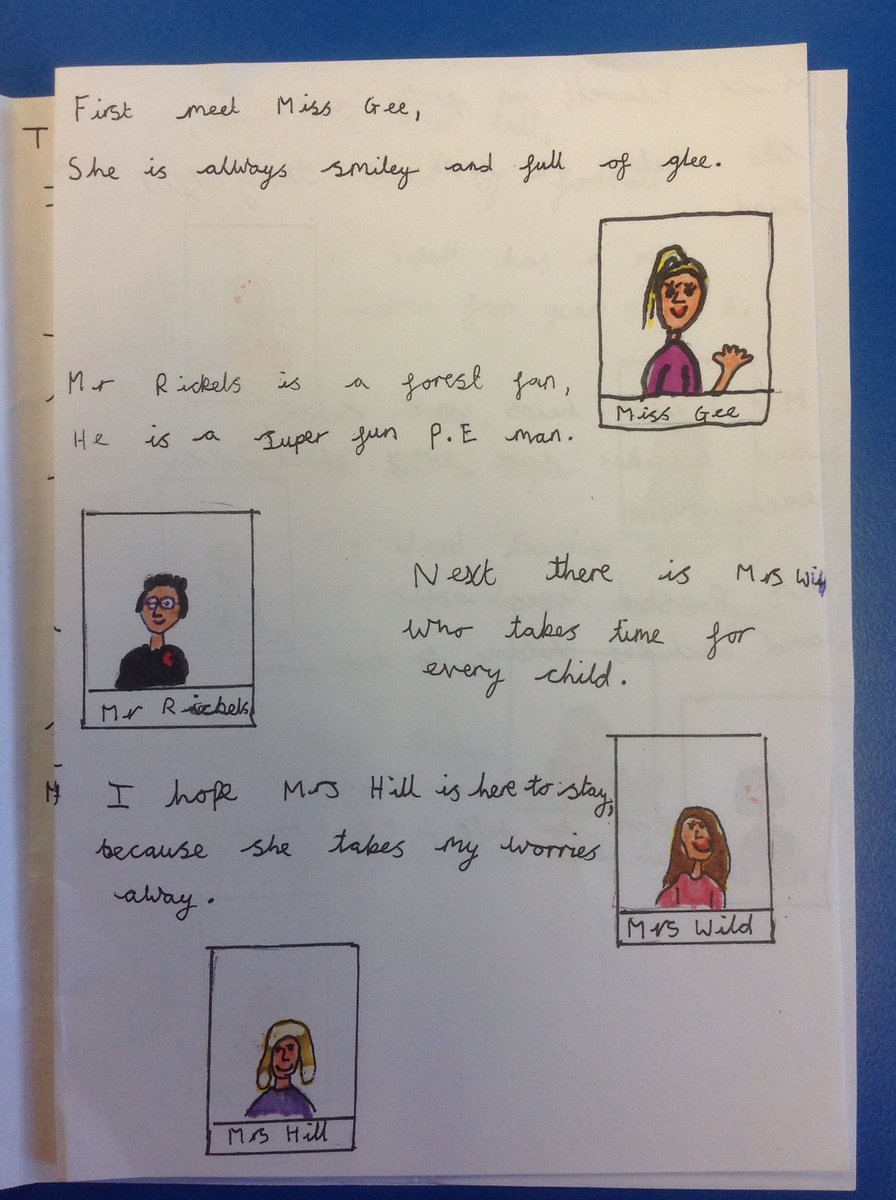 First meet Miss Gee,
She is always smiley and full of glee.
Miss Gee
Mr Rickels is a forest fan,
He is a super fun P.E man.
Mr Rickels
Next there is Mrs
who takes time for
every child.
Mrs Wild
I hope Mrs Hill is here to stay,
because she takes my worries
away.
Mrs Hill
T